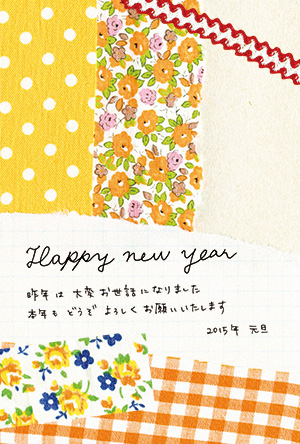 Happy new year
昨年は 大変 お世話になりました
本年も どうぞ よろしく お願いいたします
2015年 元旦